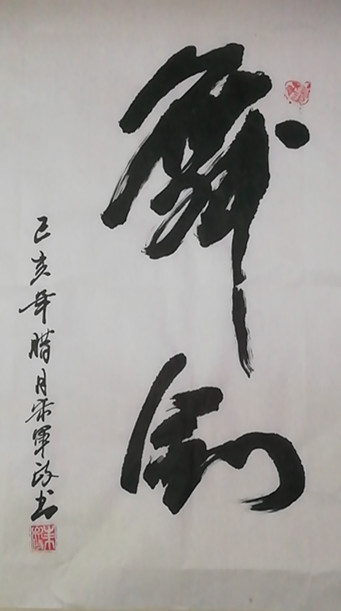 舞剑
己亥年腊月宋軍政书